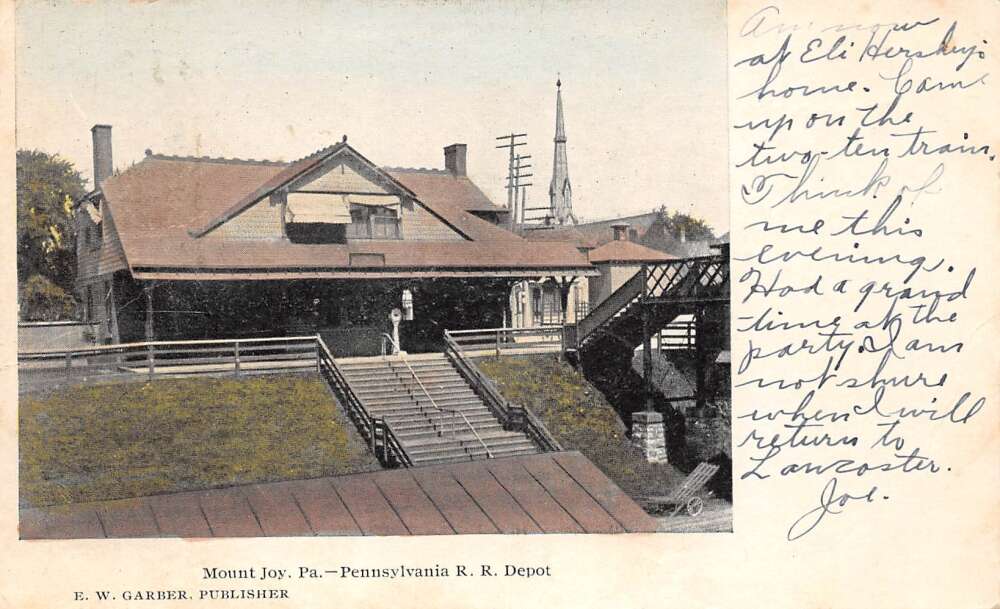 Am now
at Eli Hershey's
home. Came
up on the
two-ten train.
Think of
me this
evening.
Had a grand
time at the
party. I am
not shure
when I will
return to
Lancaster.
Joe.
Mount Joy, Pa.—Pennsylvania R. R. Depot
E. W. GARBER, PUBLISHER